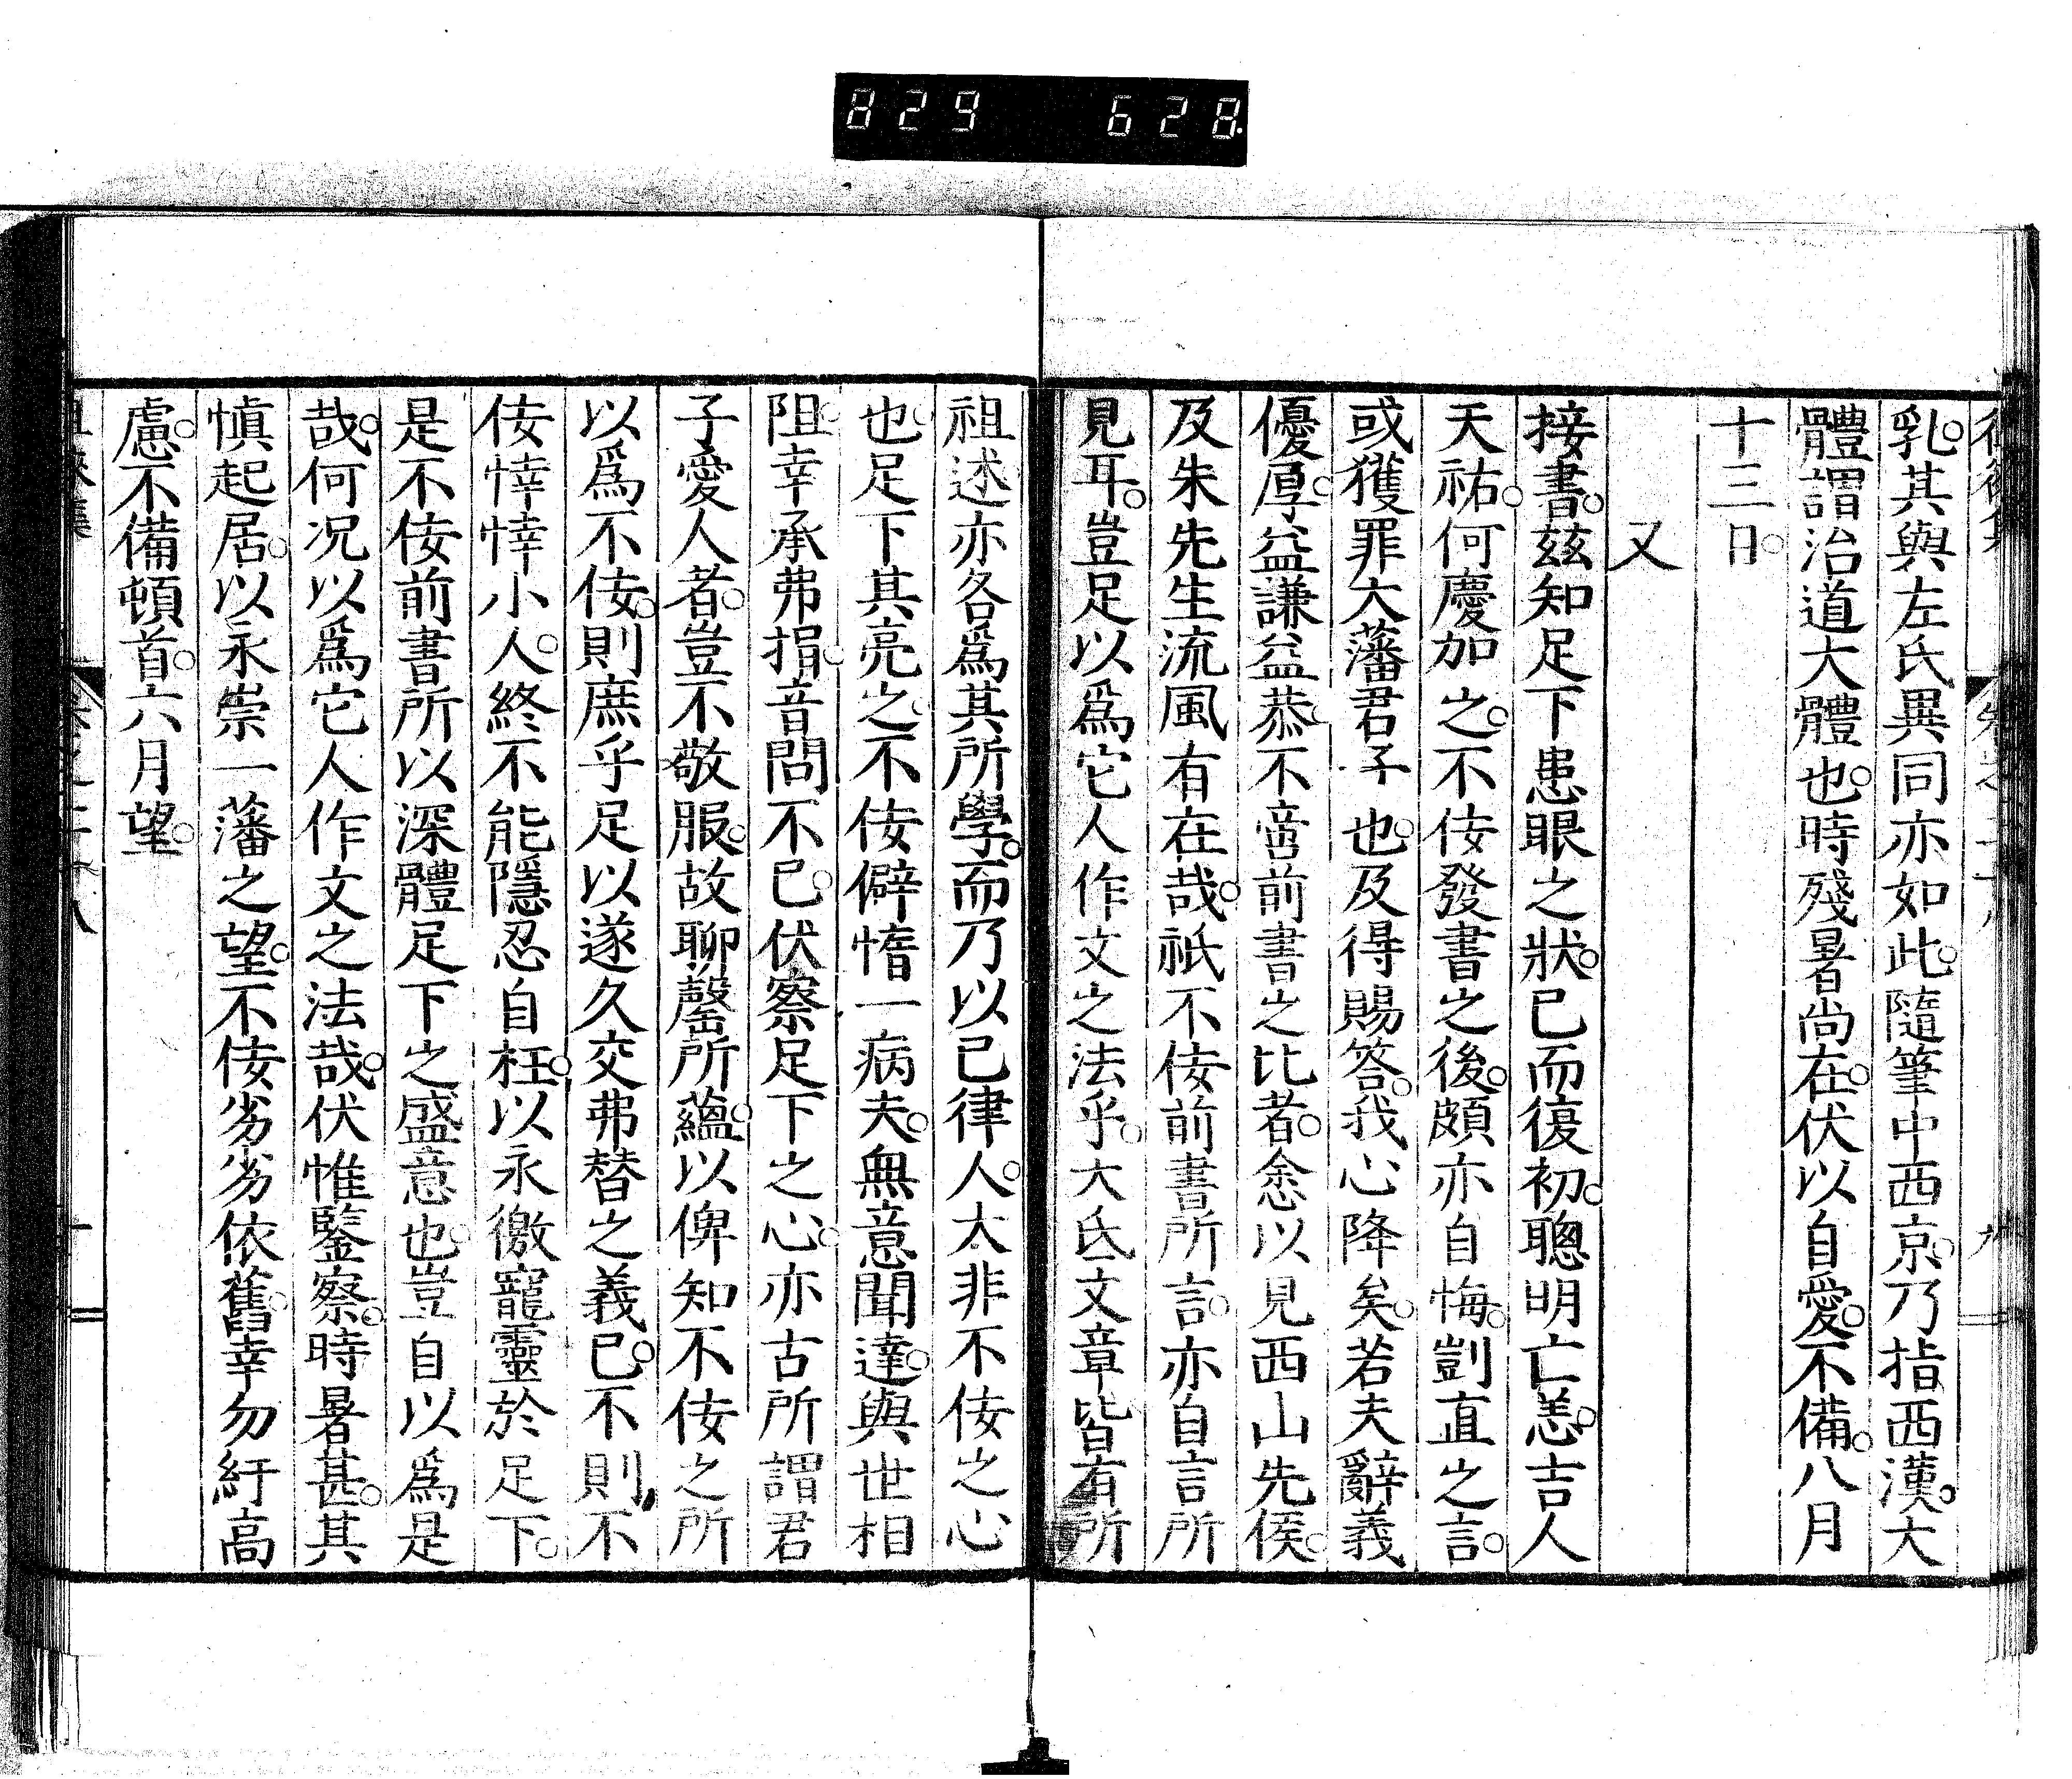 829 628
乳。其與左氏異同亦如此。隨筆中西京。乃指西漢。大
體謂治道大體也。時殘暑尚在。伏以自愛。不備。八月
十三日。
又
接書。玆知足下患眼之狀。已而復初。聰明亡恙。吉人
天祐。何慶加之。不佞發書之後。頗亦自悔。剴直之言。
或獲罪大藩君子也。及得賜答。我心降矣。若夫辭義
優厚。益謙益恭。不啻前書之比者。悆以見西山先侯。
及朱先生流風有在哉。祇不佞前書所言。亦自言所
見耳。豈足以爲它人作文之法乎。大氐文章皆有所
祖述亦各爲其所學。而乃以己律人。大非不佞之心
也。足下其亮之。不佞僻惰一病夫。無意聞達。與世相
阻。幸承弗捐。音問不已。伏察足下之心。亦古所謂君
子愛人者。豈不敬服。故聊罄所蘊。以俾知不佞之所
以爲不佞。則庶乎足以遂久交弗替之義已。不則不
佞悻悻小人。終不能隱忍自枉。以永徼寵靈於足下。
是不佞前書所以深體足下之盛意也。豈自以爲是
哉。何况以爲它人作文之法哉。伏惟鑒察。時暑甚。其
愼起居。以永崇一藩之望。不佞劣劣依舊。幸勿紆高
慮。不備頓首。六月望。